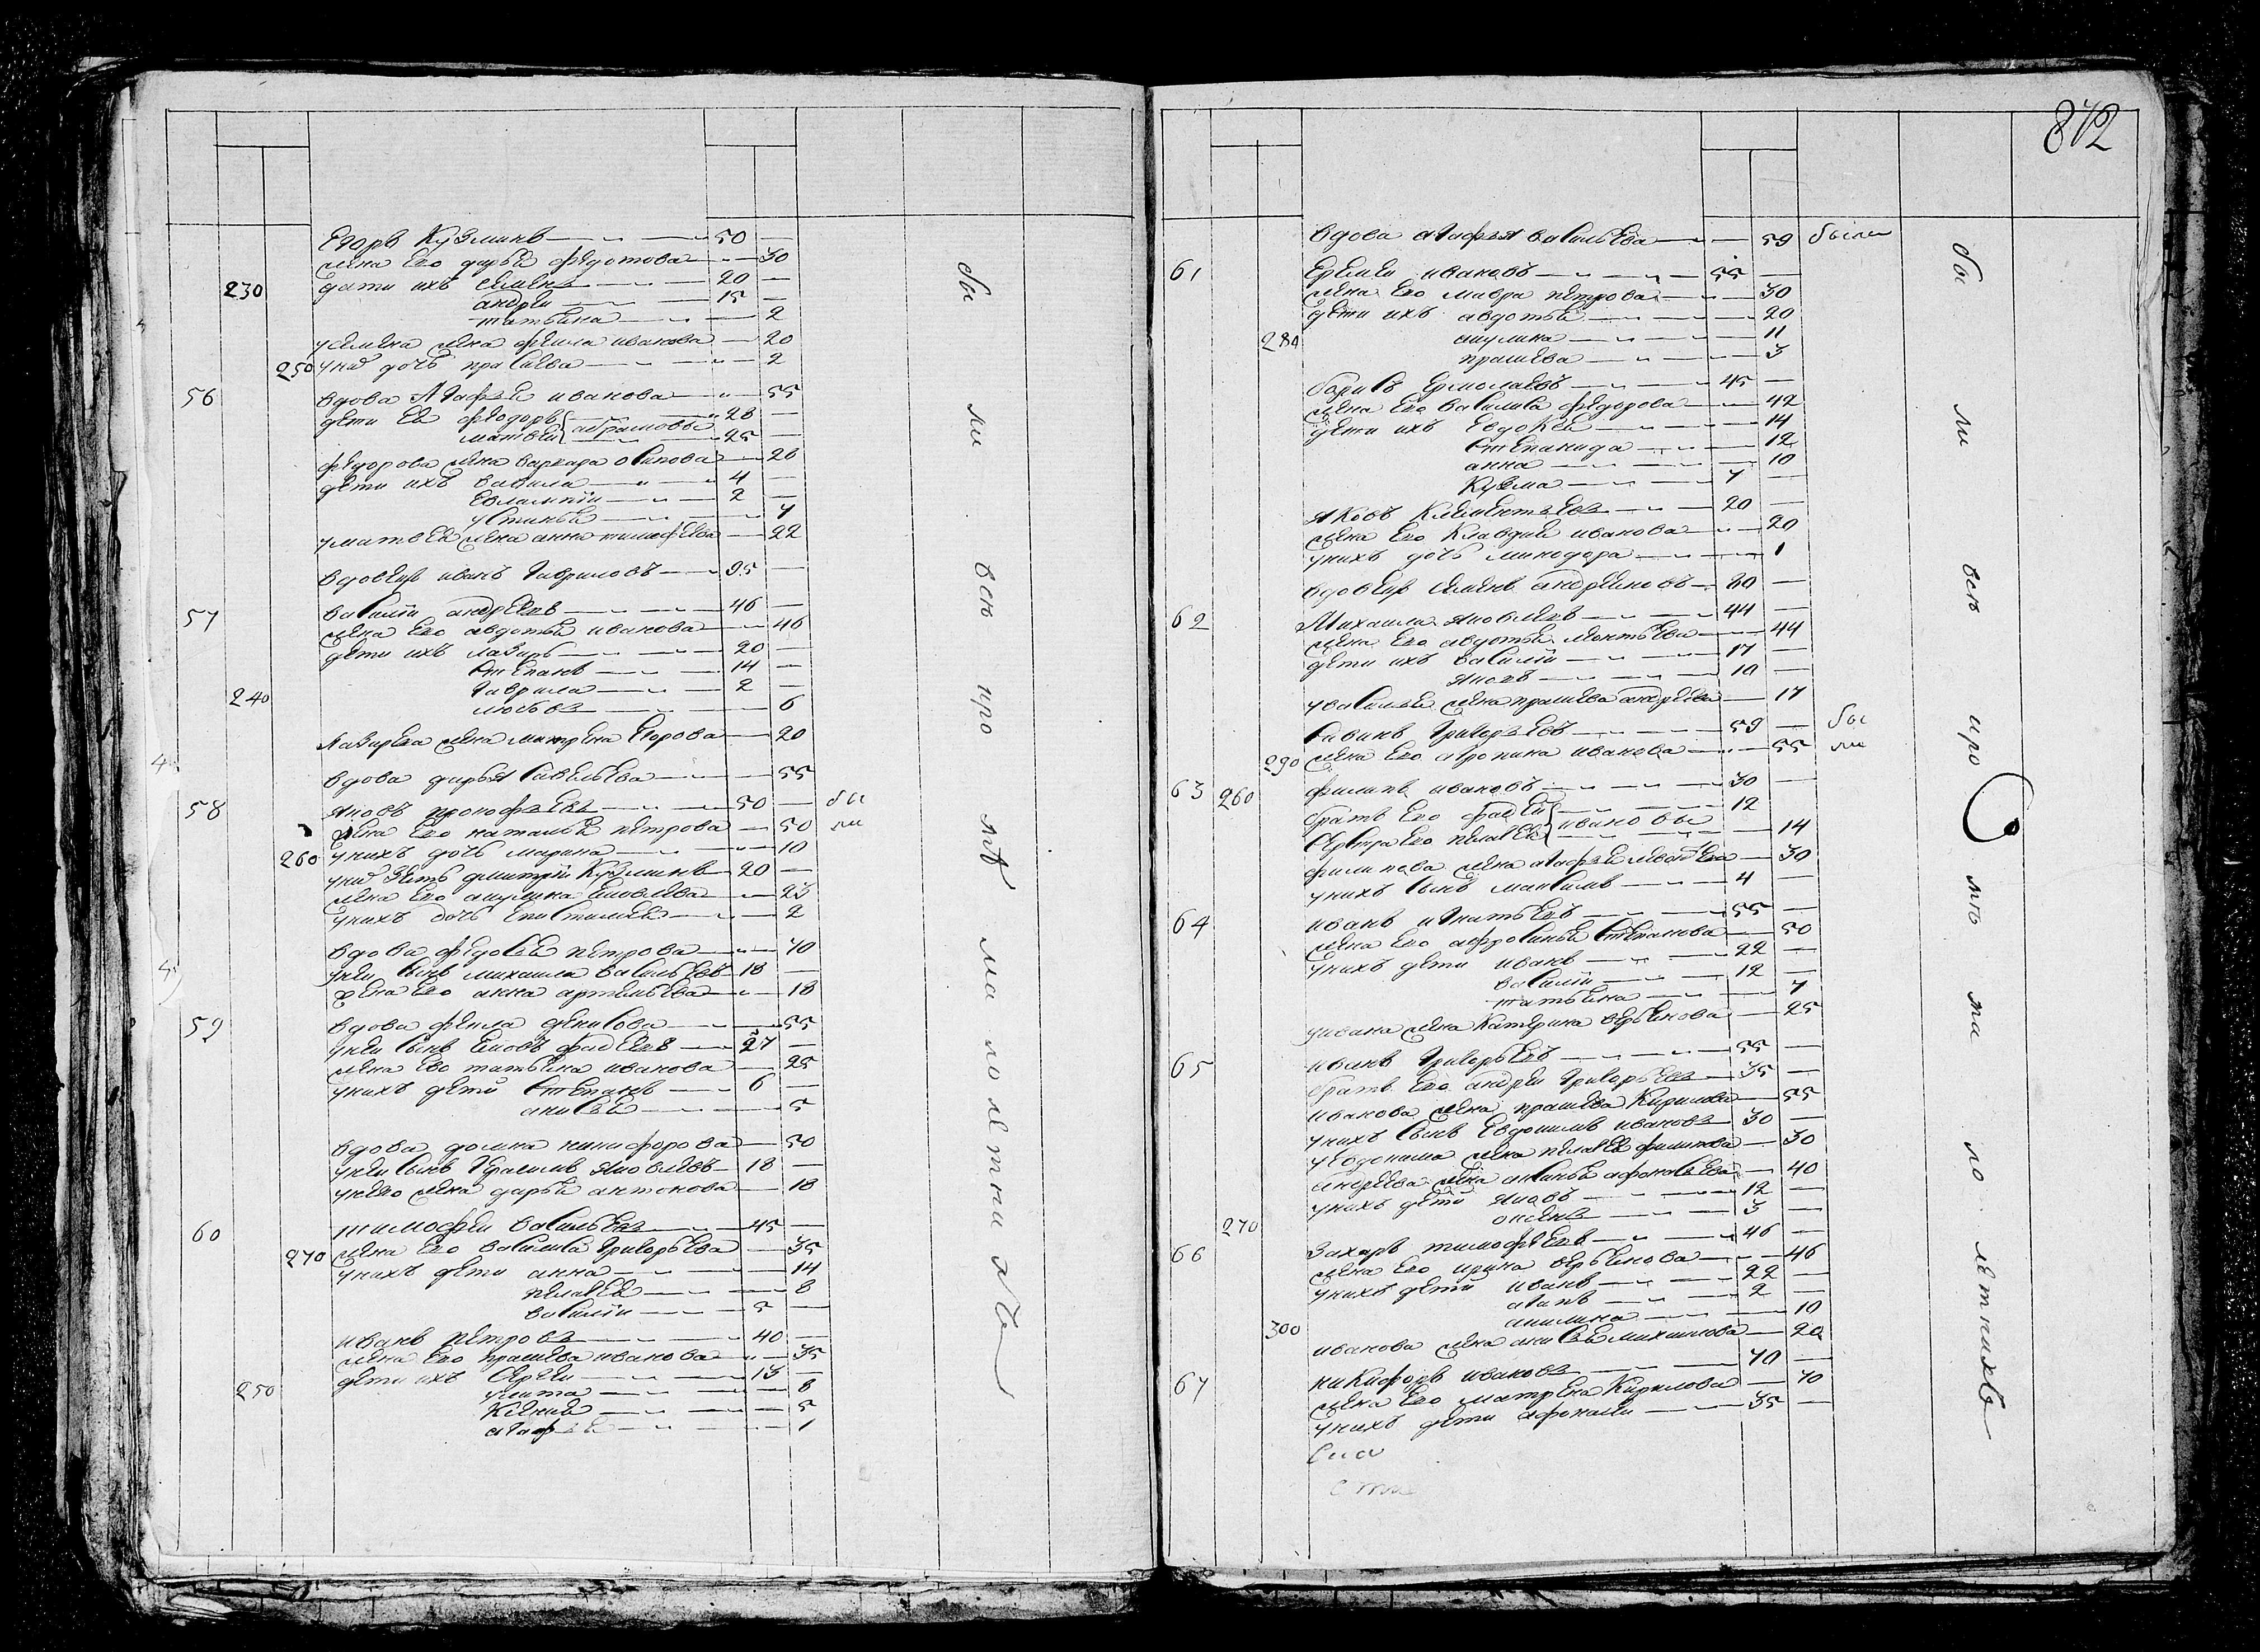 Егоръ Кузминъ 50
жена Его дарья федотова 30
230 дети ихъ семенъ 20
андрей 15
татьяна 2
усемена жена фекла иванова 20
250 уних дочь прасковя 2
56 вдова Агафья иванова 55
дети Ея федоръ абрамовы 28
матвей 25
федорова жена варвара осипова 26
дети ихъ вавила 4
Евлампий 2
устинья 7
уматвея жена анна тимофеева 22
вдовецъ иванъ гавриловъ 95
57 василий андреевъ 46
жена Его авдотья иванова 46
дети ихъ лазарь 20
степанъ 14
240 гаврила 2
любовь 6
лазарева жена матрена Егорова 20
вдова дарья савельева 55
58 яковъ прокофьевъ 50 бы
жена Его наталья петрова 50 ли
260 унихъ дочь марина 10
уних зять дмитрий Кузминъ 20
жена Его акулина яковлева 23
унихъ дочь Епистимия 2
вдова федосья петрова 70
унеи сынъ михаила васильевъ 18
жена Его анна артемьева 18
59 вдова фекла денисова 55
унеи сынъ яковъ фадеевъ 27
жена Ево татьяна иванова 25
унихъ дети степанъ 6
анисья 5
вдова домна никифорова 50
унеи сынъ Герасимъ яковлевъ 18
унево жена дарья антонова 18
60 тимофей васильевъ 45
270 жена Его василиса григорьева 35
унихъ дети анна 14
пелагея 8
василий 5
иванъ петровъ 40
жена Его прасковя иванова 35
дети ихъ сергей 13
250 улита 8
Ксения 5
агафья 1
бы ли всѣ про
по лѣтни
872
вдова агафья васильева 59 были
61 Еремей ивановъ 55
жена Его мавра петрова 30
дети ихъ авдотья 20
280 акулина 11
прасковя 3
борисъ Ермолаевъ 45
жена Его василиса федорова 42
дети ихъ Евдокея 14
степанида 12
анна 10
Кузма 7
яковъ Клементьевъ 20
жена Его Клавдия иванова 20
унихъ дочь минодора 1
вдовецъ семенъ андреяновъ 80
62 Михаила яковлевъ 44
жена Его авдотья леонтьева 44
дети ихъ василий 17
яковъ 10
увасилья жена прасковя андреева 17
савинъ григорьевъ 59 бы
290 жена Его афросина иванова 55 ли
63 260 филипъ ивановъ 30
братъ Его фадей ивановы 12
сестра Его пелагея 14
филипова жена агафья 30
унихъ сынъ максимъ 4
64 иванъ игнатьевъ 55
жена Его афросинья степанова 50
унихъ дети иванъ 22
василий 12
татьяна 7
уивана жена Катерина 25
65 иванъ григорьевъ 55
братъ Его андрей григорьевъ 35
иванова жена прасковя Кирилова 55
унихъ сынъ Евдокимъ ивановъ 30
уЕвдокима жена пелагея филипова 30
андреева жена аксинья афонасьева 40
унихъ дети яковъ 12
270 3
66 захаръ тимофеевъ 46
жена Его ирина 46
унихъ дети иванъ 22
агапъ 2
300 акилина 10
иванова жена анисья михаилова 20
67 никифоръ ивановъ 70
жена Его матрена Кирилова 70
унихъ дети афонасий 35
бы ли всѣ про
по лѣтнихъ